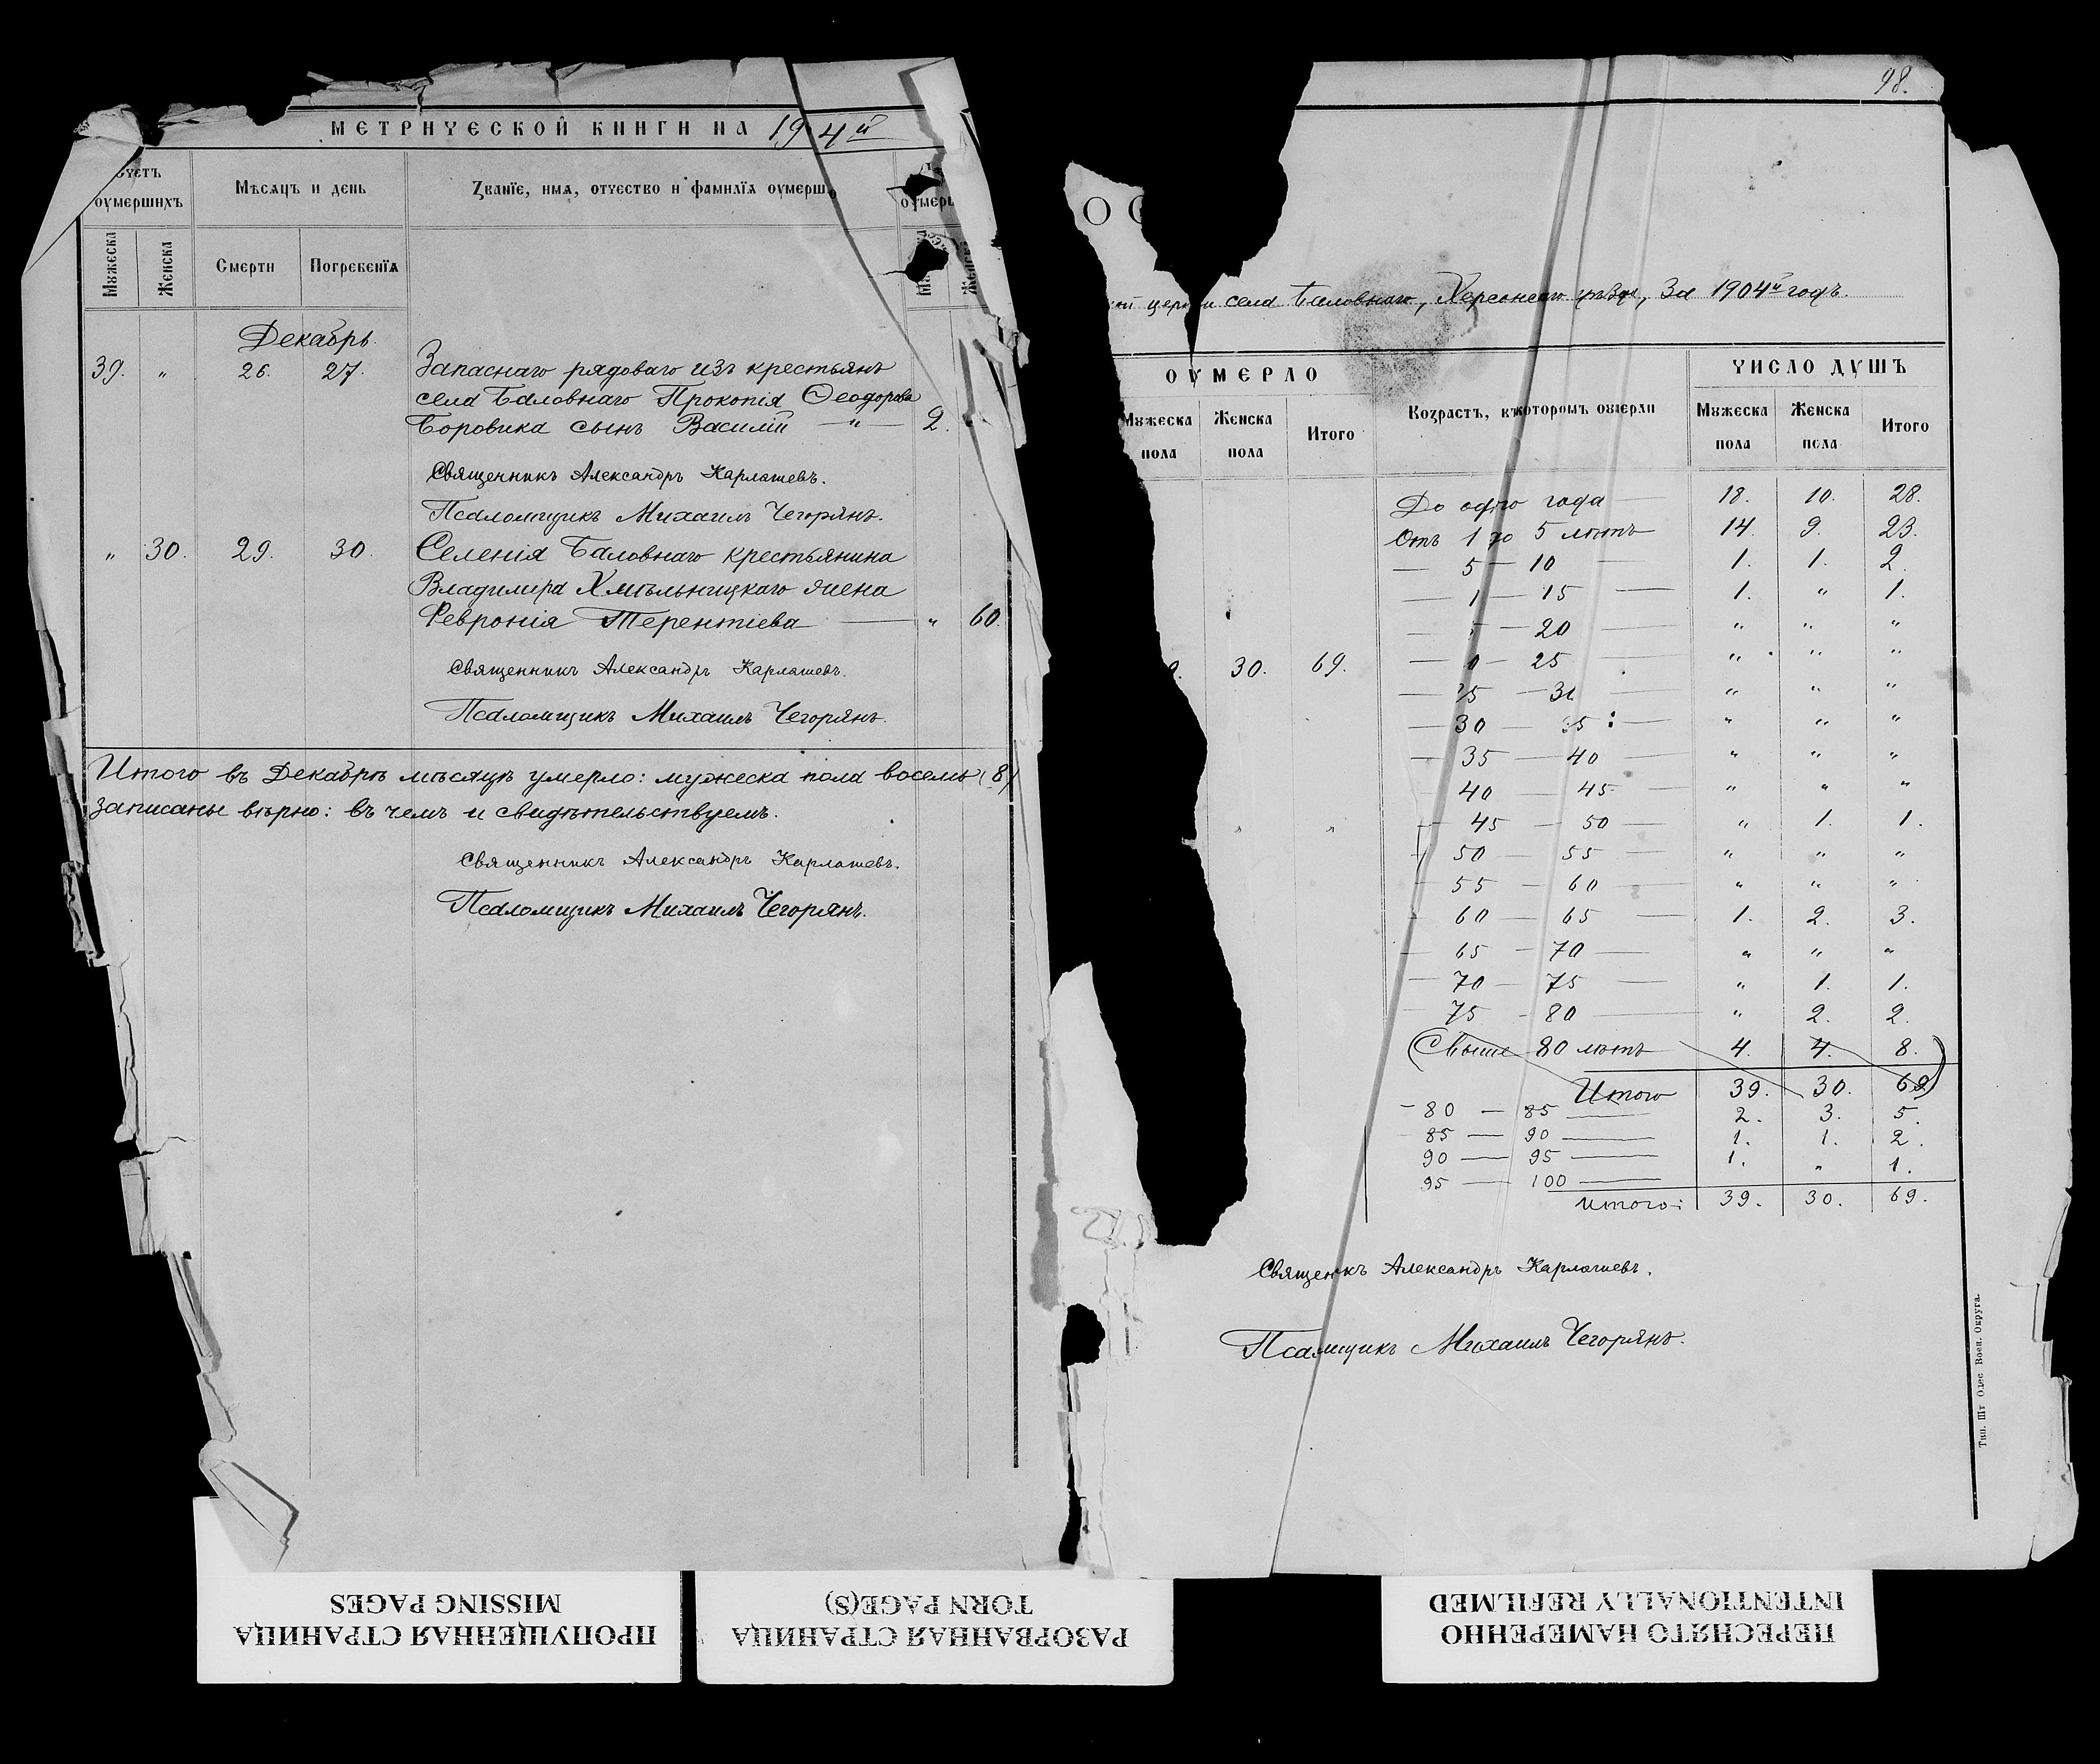 МЕТРИЧЕСКОЙ КНИГИ НА 1904й
Счетъ оумершихъ
Мѣсяцъ и день
Званїе, имя, отчество и фамилїя оумерш
Мужеска
Женска
Смерти
Погребенїя
Декабрь.
39. " 26. 27. Запаснаго рядоваго изъ крестьянъ
села Баловнаго Прокопія Ѳеодорова
Боровика сынъ Василій — " — 2.
Священникъ Александръ Карлашевъ.
Псаломщикъ Михаилъ Чегорянъ.
" 30. 29. 30. Селенія Баловнаго крестьянина
Владимира Хмѣльницкаго жена
Февронія Терентіева — " 60.
Священникъ Александръ Карлашевъ.
Псаломщикъ Михаилъ Чегорянъ.
Итого въ Декабрѣ мѣсяцѣ умерло: мужеска пола восемь (8)
записаны вѣрно: въ чемъ и свидѣтельствуемъ.
Священникъ Александръ Карлашевъ.
Псаломщикъ Михаилъ Чегорянъ.
98.
церкви села Баловнаго, Херсонскаго уѣзда, за 1904й годъ.
ОУМЕРЛО
Мужеска пола
Женска пола
Итого
Возрастъ, в которомъ оумерли
ЧИСЛО ДУШЪ
Мужеска пола
Женска пола
Итого
30. 69.
До одного года — 18. 10. 28.
Отъ 1 до 5 лѣтъ 14. 9. 23.
— 5 — 10 — 1. 1. 2.
— 1 — 15 — 1. " 1.
— — 20 — " " "
— 0 — 25 " " "
— 25 — 30 — " " "
— 30 — 35 — " " "
— 35 — 40 — " " "
40 — 45 — " " "
— 45 — 50 — " 1. 1.
50 — 55 — " " "
55 — 60 — " " "
60 — 65 — 1. 2. 3.
— 65 — 70 — " " "
— 70 — 75 — " 1. 1.
75 — 80 — " 2. 2.
(Свыше 80 лѣтъ 4. 4. 8.
Итого 39. 30. 69)
— 80 — 85 — 2. 3. 5.
85 — 90 — 1. 1. 2.
90 — 95 — 1. " 1.
95 — 100 —
Итого: 39. 30. 69.
Священкъ Александръ Карлашевъ.
Псамщикъ Михаилъ Чегорянъ.
Тип. Шт Одес Воен. Округа.
ПРОПУЩЕННАЯ СТРАНИЦА
MISSING PAGES
РАЗОРВАННАЯ СТРАНИЦА
TORN PAGE(S)
ПЕРЕСНЯТО НАМЕРЕННО
INTENTIONALLY REFILMED